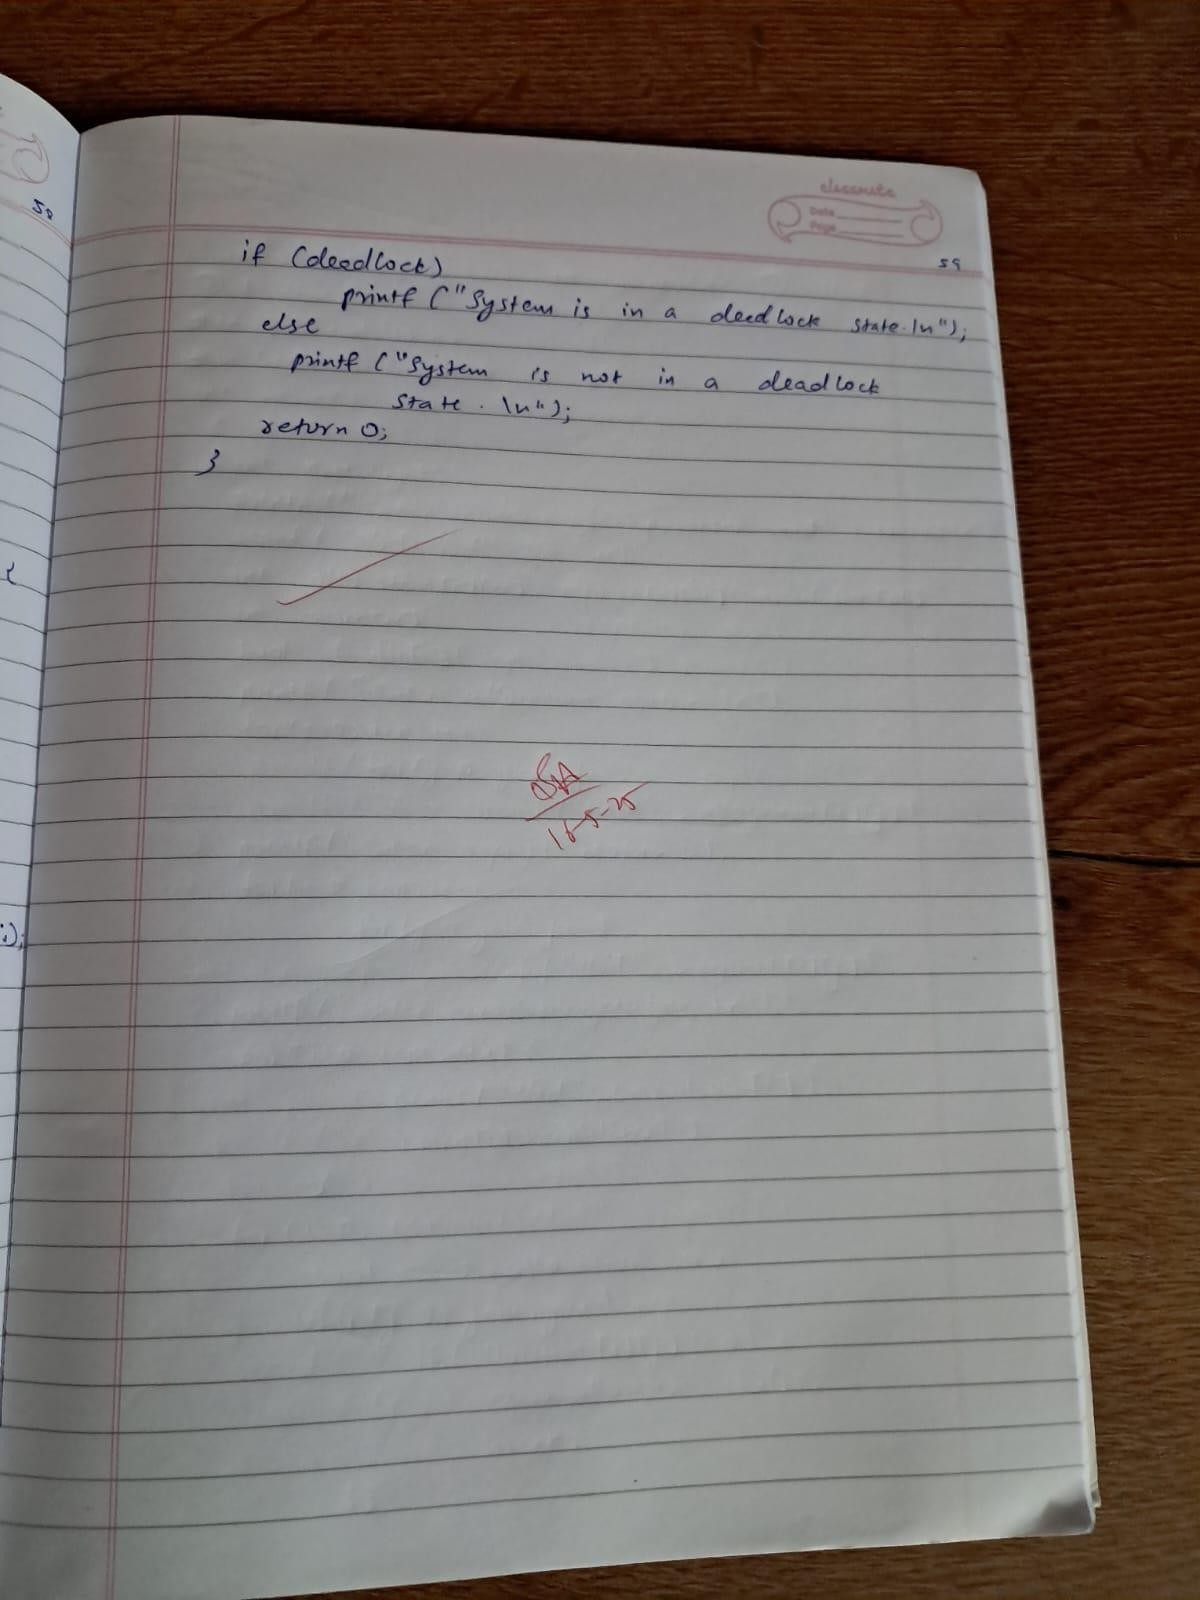 classmate
Date
Page
58
59
if (deadlock)
printf ("System is in a deadlock state.\n");
else
printf ("System is not in a deadlock
state. \n");
return 0;
}
{
i);
16-5-25